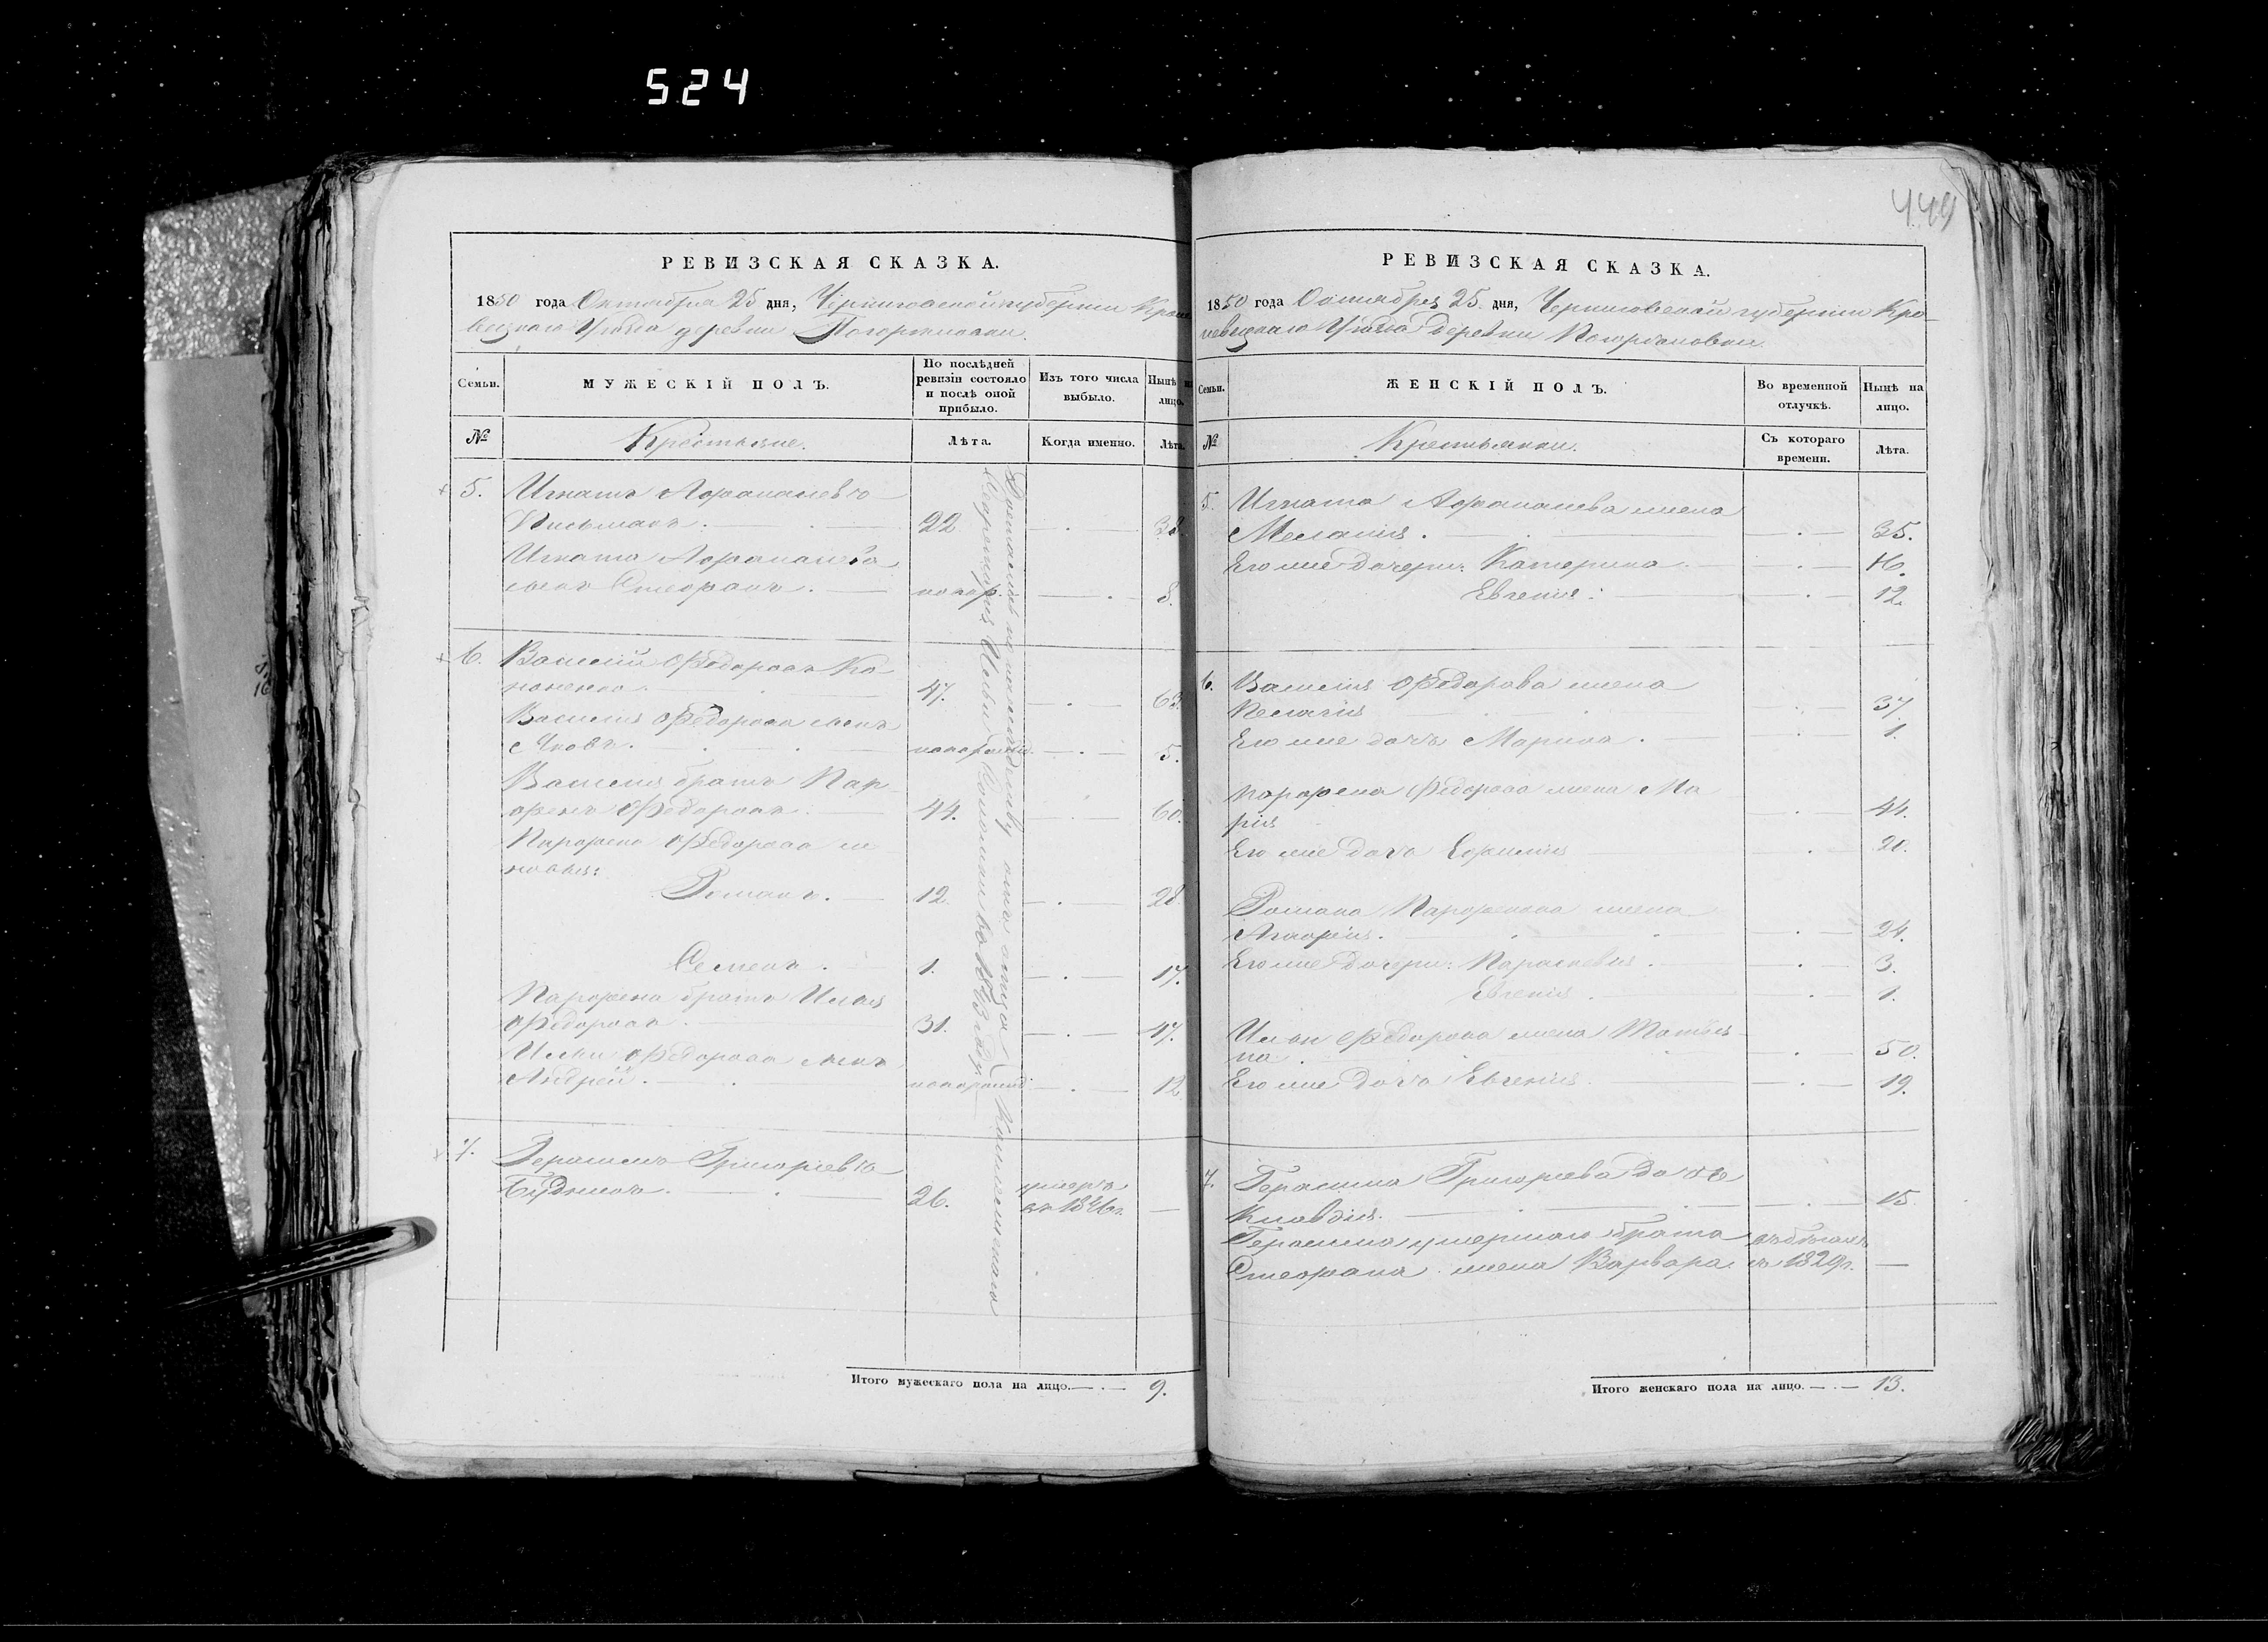 524
449
РЕВИЗСКАЯ СКАЗКА.
1850 года Октября 25 дня, Черниговской губернiи Кроле
вецкаго Уѣзда деревни
Семьи.
МУЖЕСКIЙ ПОЛЪ.
По послѣдней ревизiи состояло и послѣ оной прибыло.
Изъ того числа выбыло.
Нынѣ на лицо.
№
Крестьяне.
Лѣта.
Когда именно.
Лѣта.
5. Игнатъ Афанасьевъ
22 38.
Игната Афанасьева
сынъ Стефанъ. новор. 8.
6. Василiй Федоровъ Ко
ноненко. 47. 63.
Василiя Федорова сынъ
Яковъ. новорожд. 5.
Василiя братъ Пар
фенъ Федоровъ. 44. 60.
Парфена Федорова сы
новья:
Романъ. 12. 28.
Семенъ. 1. 17.
Парфена братъ Илья
Федоровъ. 31. 47.
Ильи Федорова сынъ
Андрей. новорожд. 12
7. Герасимъ Григорьевъ
26. умеръ въ 1846 г.
Достались по наслѣдству отъ отца
Секретаря въ 1843 году
Итого мужескаго пола на лицо. 9.
РЕВИЗСКАЯ СКАЗКА.
1850 года Октября 25 дня, Черниговской губернiи Кро-
левецкаго Уѣзда деревни
Семьи.
ЖЕНСКIЙ ПОЛЪ.
Во временной отлучкѣ.
Нынѣ на лицо.
№
Крестьянки.
Съ котораго времени.
Лѣта.
5. Игната Афанасьева жена
Меланiя. 35.
Его же дочери: Катерина.
Евгенiя. 12.
6. Василiя Федорова жена
Пелагiя 37.
Его же дочь Марина. 1.
Парфена Федорова жена Ма
рiя 44.
Его же дочь Ефимiя 20.
Романа Парфенова жена
Агафiя. 24.
Его же дочери: Параскевiя. 3.
Евгенiя. 1.
Ильи Федорова жена Татья
на. 50.
Его же дочь Евгенiя. 19.
7. Герасима Григорьева дочь
Клавдiя. 15.
Герасима умершаго брата въ бѣгахъ
Стефана жена Варвара. съ 1829 г.
Итого женскаго пола на лицо. 13.